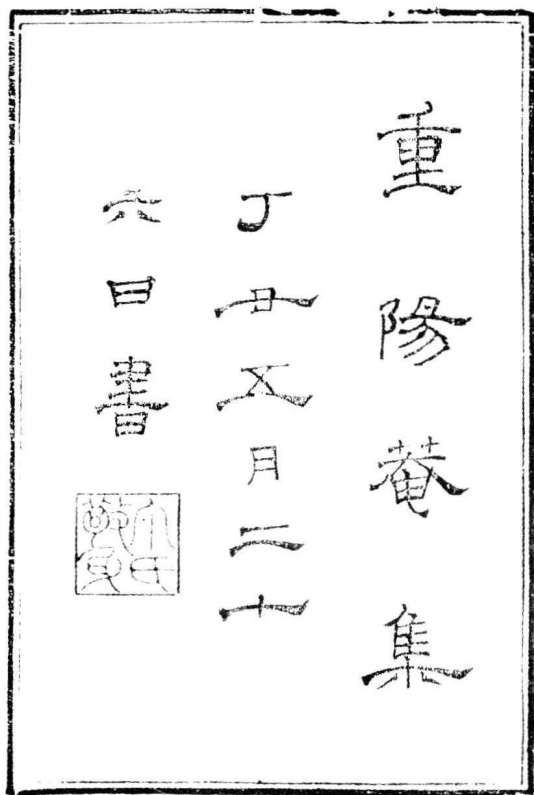 重陽菴集
丁丑五月二十
六日書